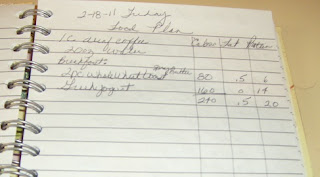 2-18-11 Friday
Food Plan
1 c. decaf coffee Calories Fat Protein
20oz water
Breakfast:
2pc whole wheat toast Spray Butter 80 .5 6
Greek yogurt 160 0 14
240 .5 20